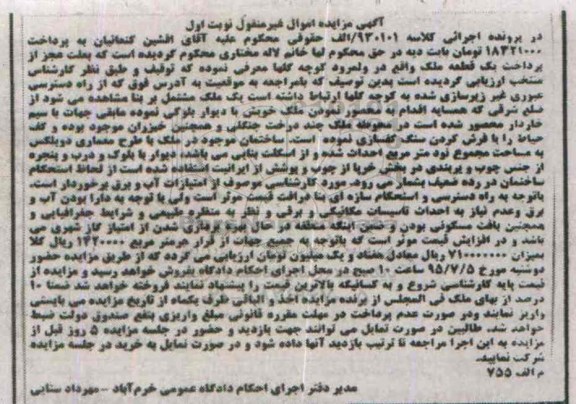 آگهی مزایده اموال غیرمنقول نوبت اول
در پرونده اجرائی کلاسه ۹۳۰۱۰۱/الف حقوقی محکوم علیه آقای افشین کنعانیان به پرداخت
۱۸۳۲۱۰۰۰ تومان بابت دیه در حق محکوم لها خانم لاله مختاری محکوم گردیده است که بعلت عجز از
پرداخت یک قطعه ملک واقع در ولمرود کوچه گلها معرفی نموده که توقیف و طبق نظر کارشناسی
منتخب ارزیابی گردیده است بدین توصیف که بامراجعه به موقعیت به آدرس فوق که از راه دسترسی
عبوری غیر زیرسازی شده به کوچه گلها ارتباط داشته است یک ملک مشتمل بر بنا مشاهده می شود از
ضلع شرقی که همسایه اقدام به محصور نمودن ملک خویش با دیوار بلوکی نموده مابقی جهات با سیم
خاردار محصور شده است در محوطه ملک چند درخت جنگلی و همچنین خیزران موجود بوده و کف
حیاط را با فرش کردن سنگ کفسازی نموده است. ساختمان موجود در ملک با طرح معماری دوبلکس
به مساحت مجموع نود متر مربع احداث شده و از اسکلت بنایی می باشد. دیوار با بلوک و درب و پنجره
از جنس چوب و پربندی در بخش خرپا از چوب و پوشش از ایرانیت استفاده شده است از لحاظ استحکام
ساختمان در رده ضعیف بشمار می رود. مورد کارشناسی موصوف از امتیازات آب و برق برخوردار است.
باتوجه به راه دسترسی و استحکام سازه ای با دریافت قیمت موثر است ولی با توجه به دارا بودن آب و
برق وعدم نیاز به احداث تاسیسات مکانیکی و برقی و نظر به منظره طبیعی و شرایط جغرافیایی و
همچنین بافت مسکونی بودن و ضمن اینکه منطقه در حال بهره برداری شدن از امتیاز گاز شهری می
باشد و در افزایش قیمت موثر است که باتوجه به جمیع جهات از قرار هرمتر مربع ۱۴۲۰۰۰۰ ریال کلا
بمیزان ۷۱۰۰۰۰۰۰۰ ریال معادل هفتاد و یک میلیون تومان ارزیابی می گردد که از طریق مزایده حضور
دوشنبه مورخ ۹۵/۷/۵ ساعت ۱۰ صبح در محل اجرای احکام دادگاه بفروش خواهد رسید و مزایده از
قیمت پایه کارشناسی شروع و به کسانیکه بالاترین قیمت را پیشنهاد نمایند فروخته خواهد شد ضمنا ۱۰
درصد از بهای ملک فی المجلس از برنده مزایده اخذ و الباقی ظرف یکماه از تاریخ مزایده می بایستی
واریز نمایند ودر صورت عدم پرداخت در مهلت مقرره قانونی مبلغ واریزی بنفع صندوق دولت ضبط
خواهد شد. طالبین در صورت تمایل می توانند جهت بازدید و حضور در جلسه مزایده ۵ روز قبل از
مزایده به این اجرا مراجعه تا ترتیب بازدید آنها داده شود و در صورت تمایل به خرید در جلسه مزایده
شرکت نمایید.
م الف ۷۵۵
مدیر دفتر اجرای احکام دادگاه عمومی خرم آباد - مهرداد ستایی